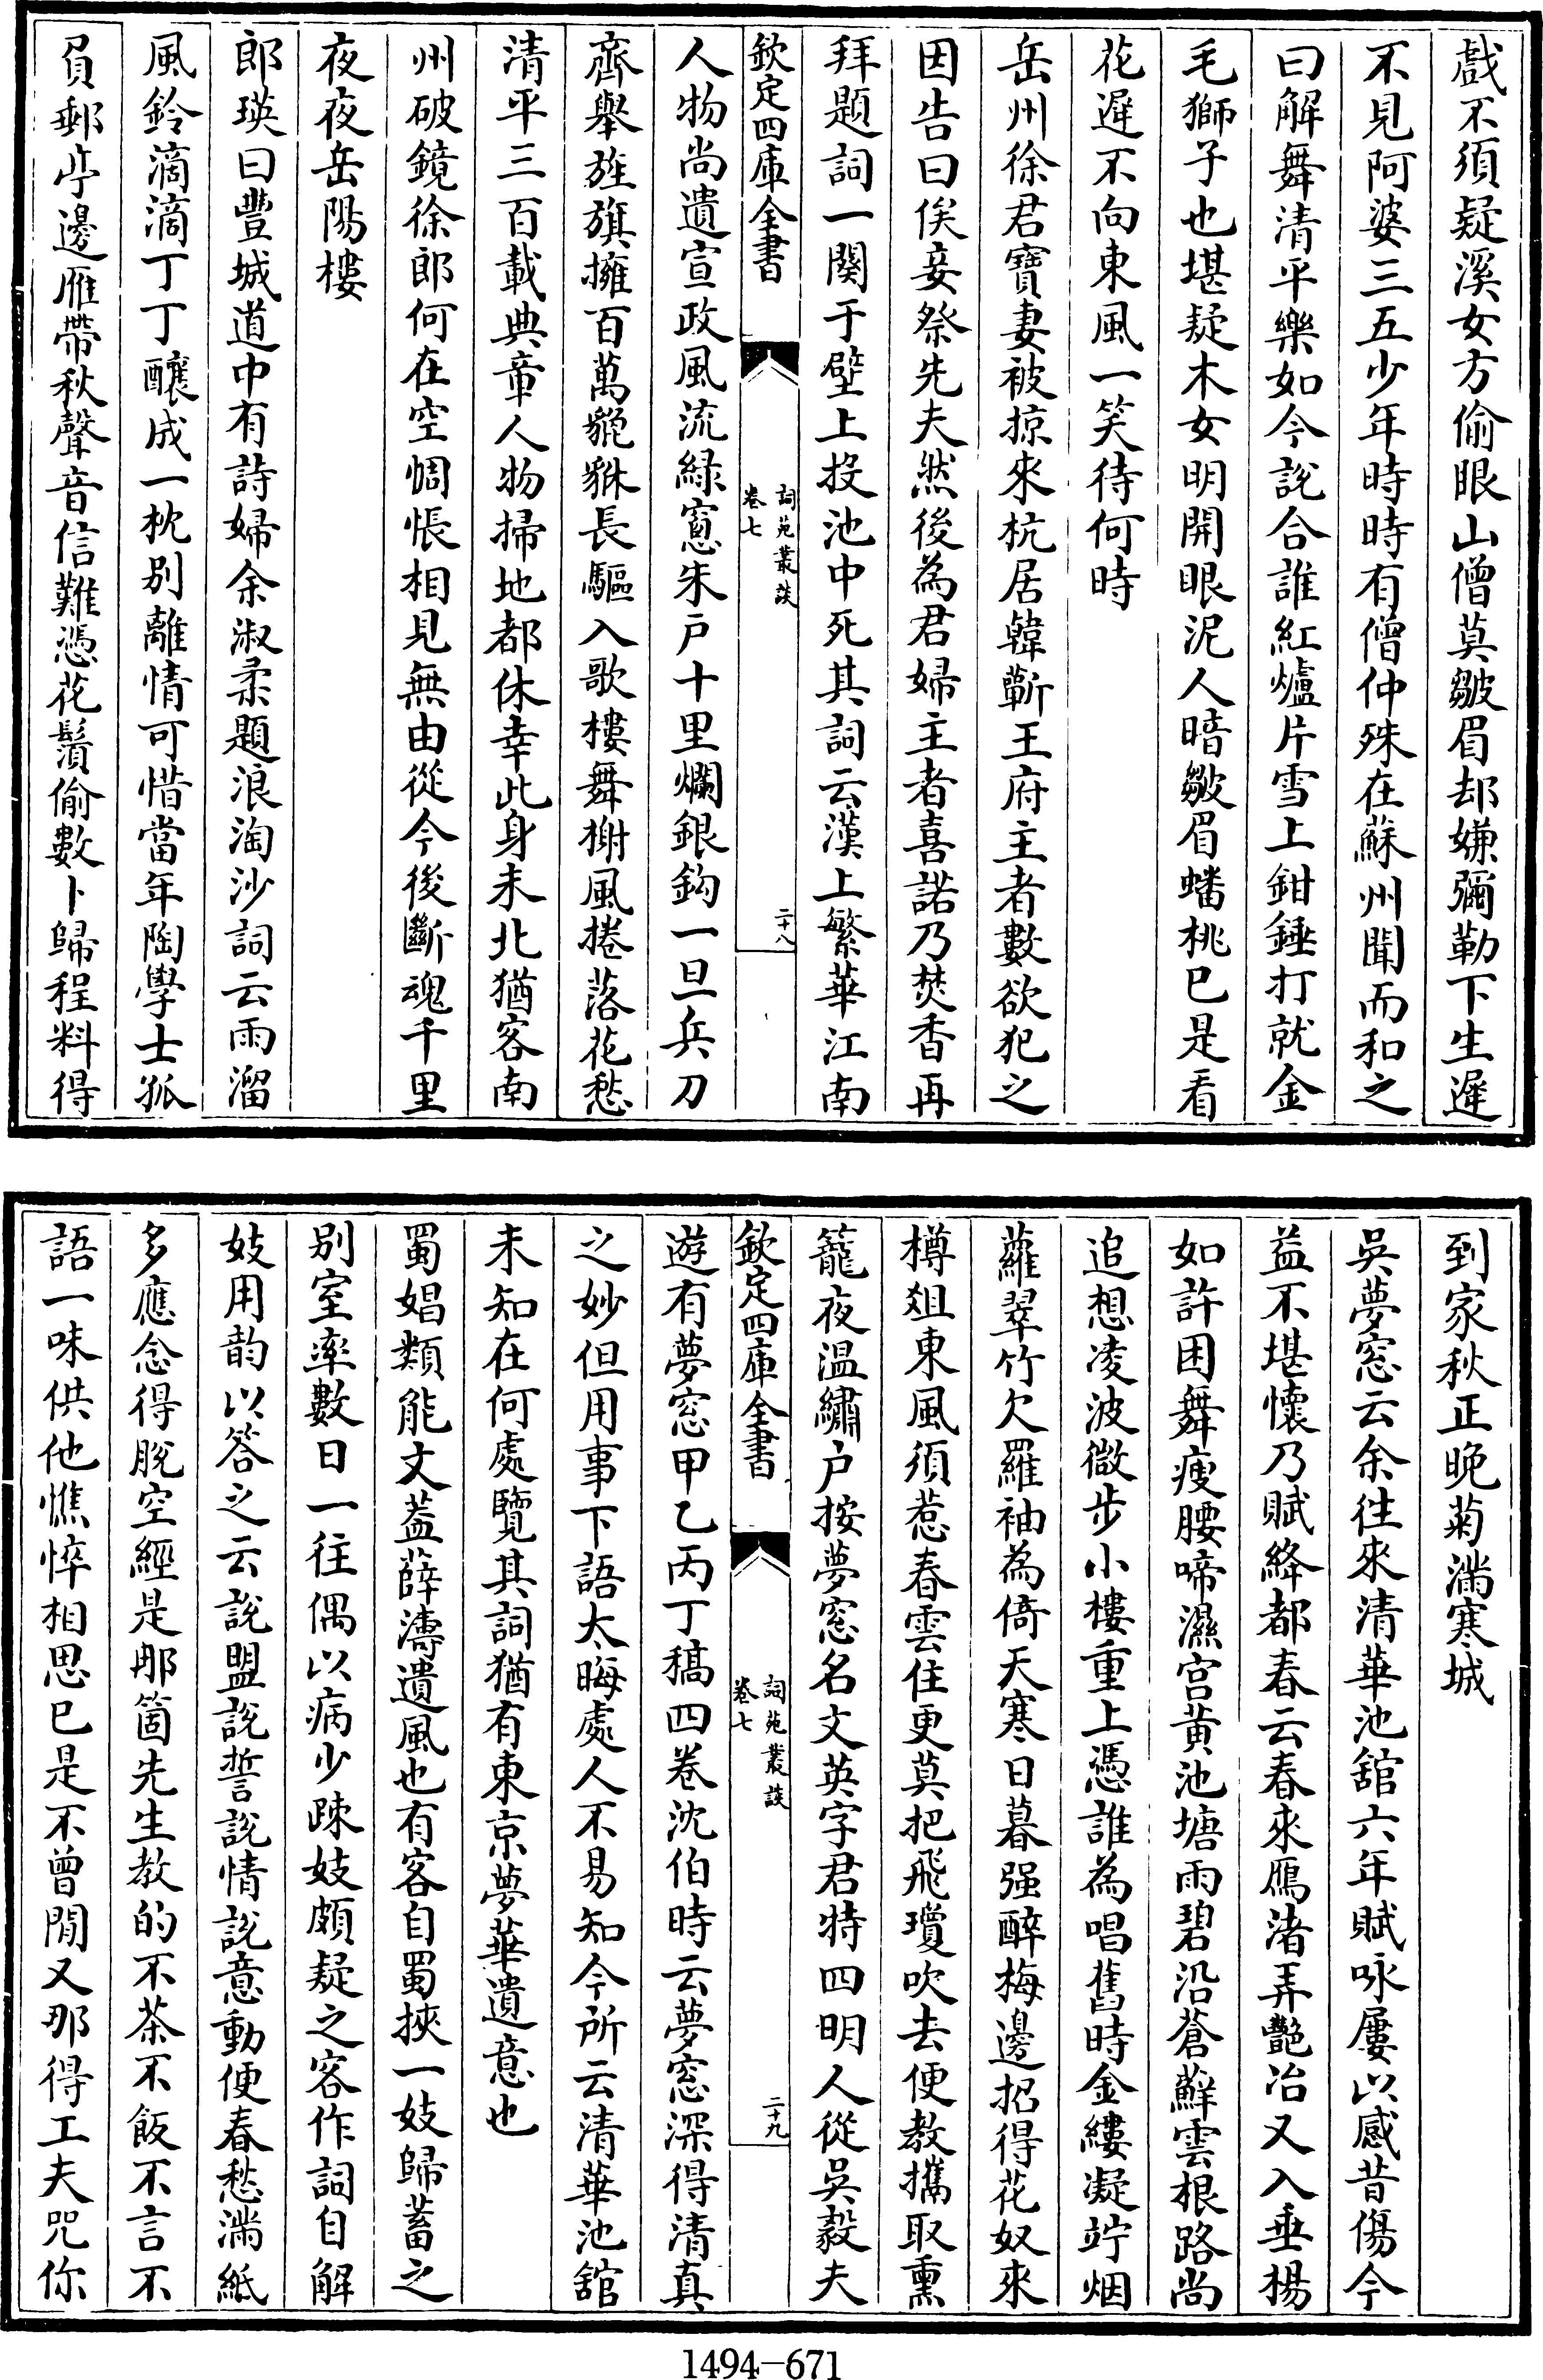 戲不須疑溪女方偷眼山僧莫皺眉却嫌彌勒下生遲
不見阿婆三五少年時時有僧仲殊在蘇州聞而和之
曰解舞清平樂如今說合誰紅爐片雪上鉗錘打就金
毛獅子也堪疑木女明開眼泥人暗皺眉蟠桃已是看
花遲不向東風一笑待何時
岳州徐君寶妻被掠來杭居韓蘄王府主者數欲犯之
因告曰俟妾祭先夫然後為君婦主者喜諾乃焚香再
拜題詞一闋于壁上投池中死其詞云漢上繁華江南
欽定四庫全書
詞苑叢談
卷七
二十八
人物尚遺宣政風流綠窻朱戶十里爛銀鈎一旦兵刀
齊舉旌旗擁百萬貔貅長驅入歌樓舞榭風捲落花愁
清平三百載典章人物掃地都休幸此身未北猶客南
州破鏡徐郎何在空惆悵相見無由從今後斷魂千里
夜夜岳陽樓
郎瑛曰豐城道中有詩婦余淑柔題浪淘沙詞云雨溜
風鈴滴滴丁丁釀成一枕別離情可惜當年陶學士孤
負郵亭邊雁帶秋聲音信難憑花鬚偷數卜歸程料得
到家秋正晚菊滿寒城
吳夢窓云余往來清華池舘六年賦咏屢以感昔傷今
益不堪懷乃賦絳都春云春來鴈渚弄艷冶又入垂楊
如許困舞瘦腰啼濕宫黃池塘雨碧沿蒼蘚雲根路尚
追想凌波微步小樓重上憑誰為唱舊時金縷凝竚烟
蘿翠竹欠羅袖為倚天寒日暮强醉梅邊招得花奴來
樽俎東風須惹春雲住更莫把飛瓊吹去便教攜取熏
籠夜溫繡户按夢窓名文英字君特四明人從吳毅夫
欽定四庫全書
詞苑叢談
卷七
二十九
遊有夢窓甲乙丙丁稿四卷沈伯時云夢窓深得清真
之妙但用事下語太晦處人不易知今所云清華池舘
未知在何處覽其詞猶有東京夢華遺意也
蜀娼類能文葢薛濤遺風也有客自蜀挾一妓歸蓄之
別室率數日一往偶以病少疎妓頗疑之客作詞自解
妓用韵以答之云說盟說誓說情說意動便春愁滿紙
多應念得脫空經是那箇先生教的不茶不飯不言不
語一味供他憔悴相思已是不曾閒又那得工夫咒你
1494-671